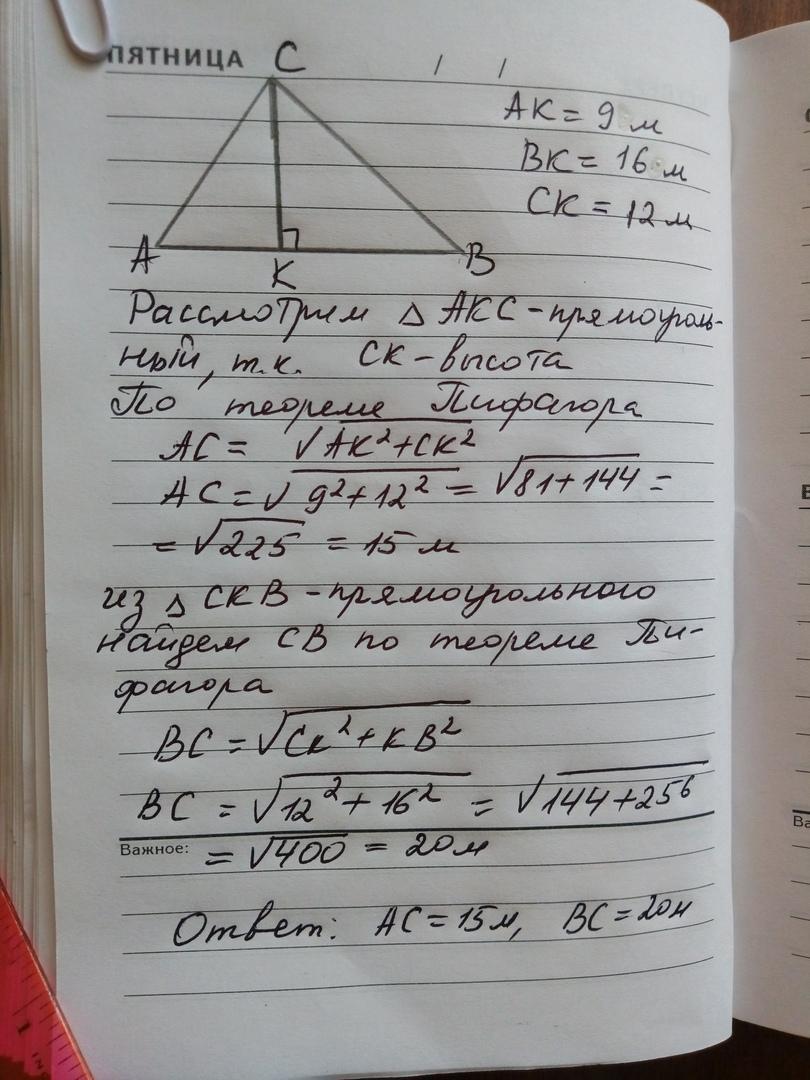 ПЯТНИЦА
C
/ /
AK = 9 м
BK = 16 м
CK = 12 м
A
K
B
Рассмотрим △ AKC - прямоуголь-
ный, т.к. CK - высота
По теореме Пифагора
AC = √AK²+CK²
AC = √9²+12² = √81+144 =
= √225 = 15 м
из △ CKB - прямоугольного
найдем CB по теореме Пи-
фагора
BC = √CK²+KB²
BC = √12²+16² = √144+256
Важное: = √400 = 20 м
Ответ: AC = 15 м, BC = 20 м
1